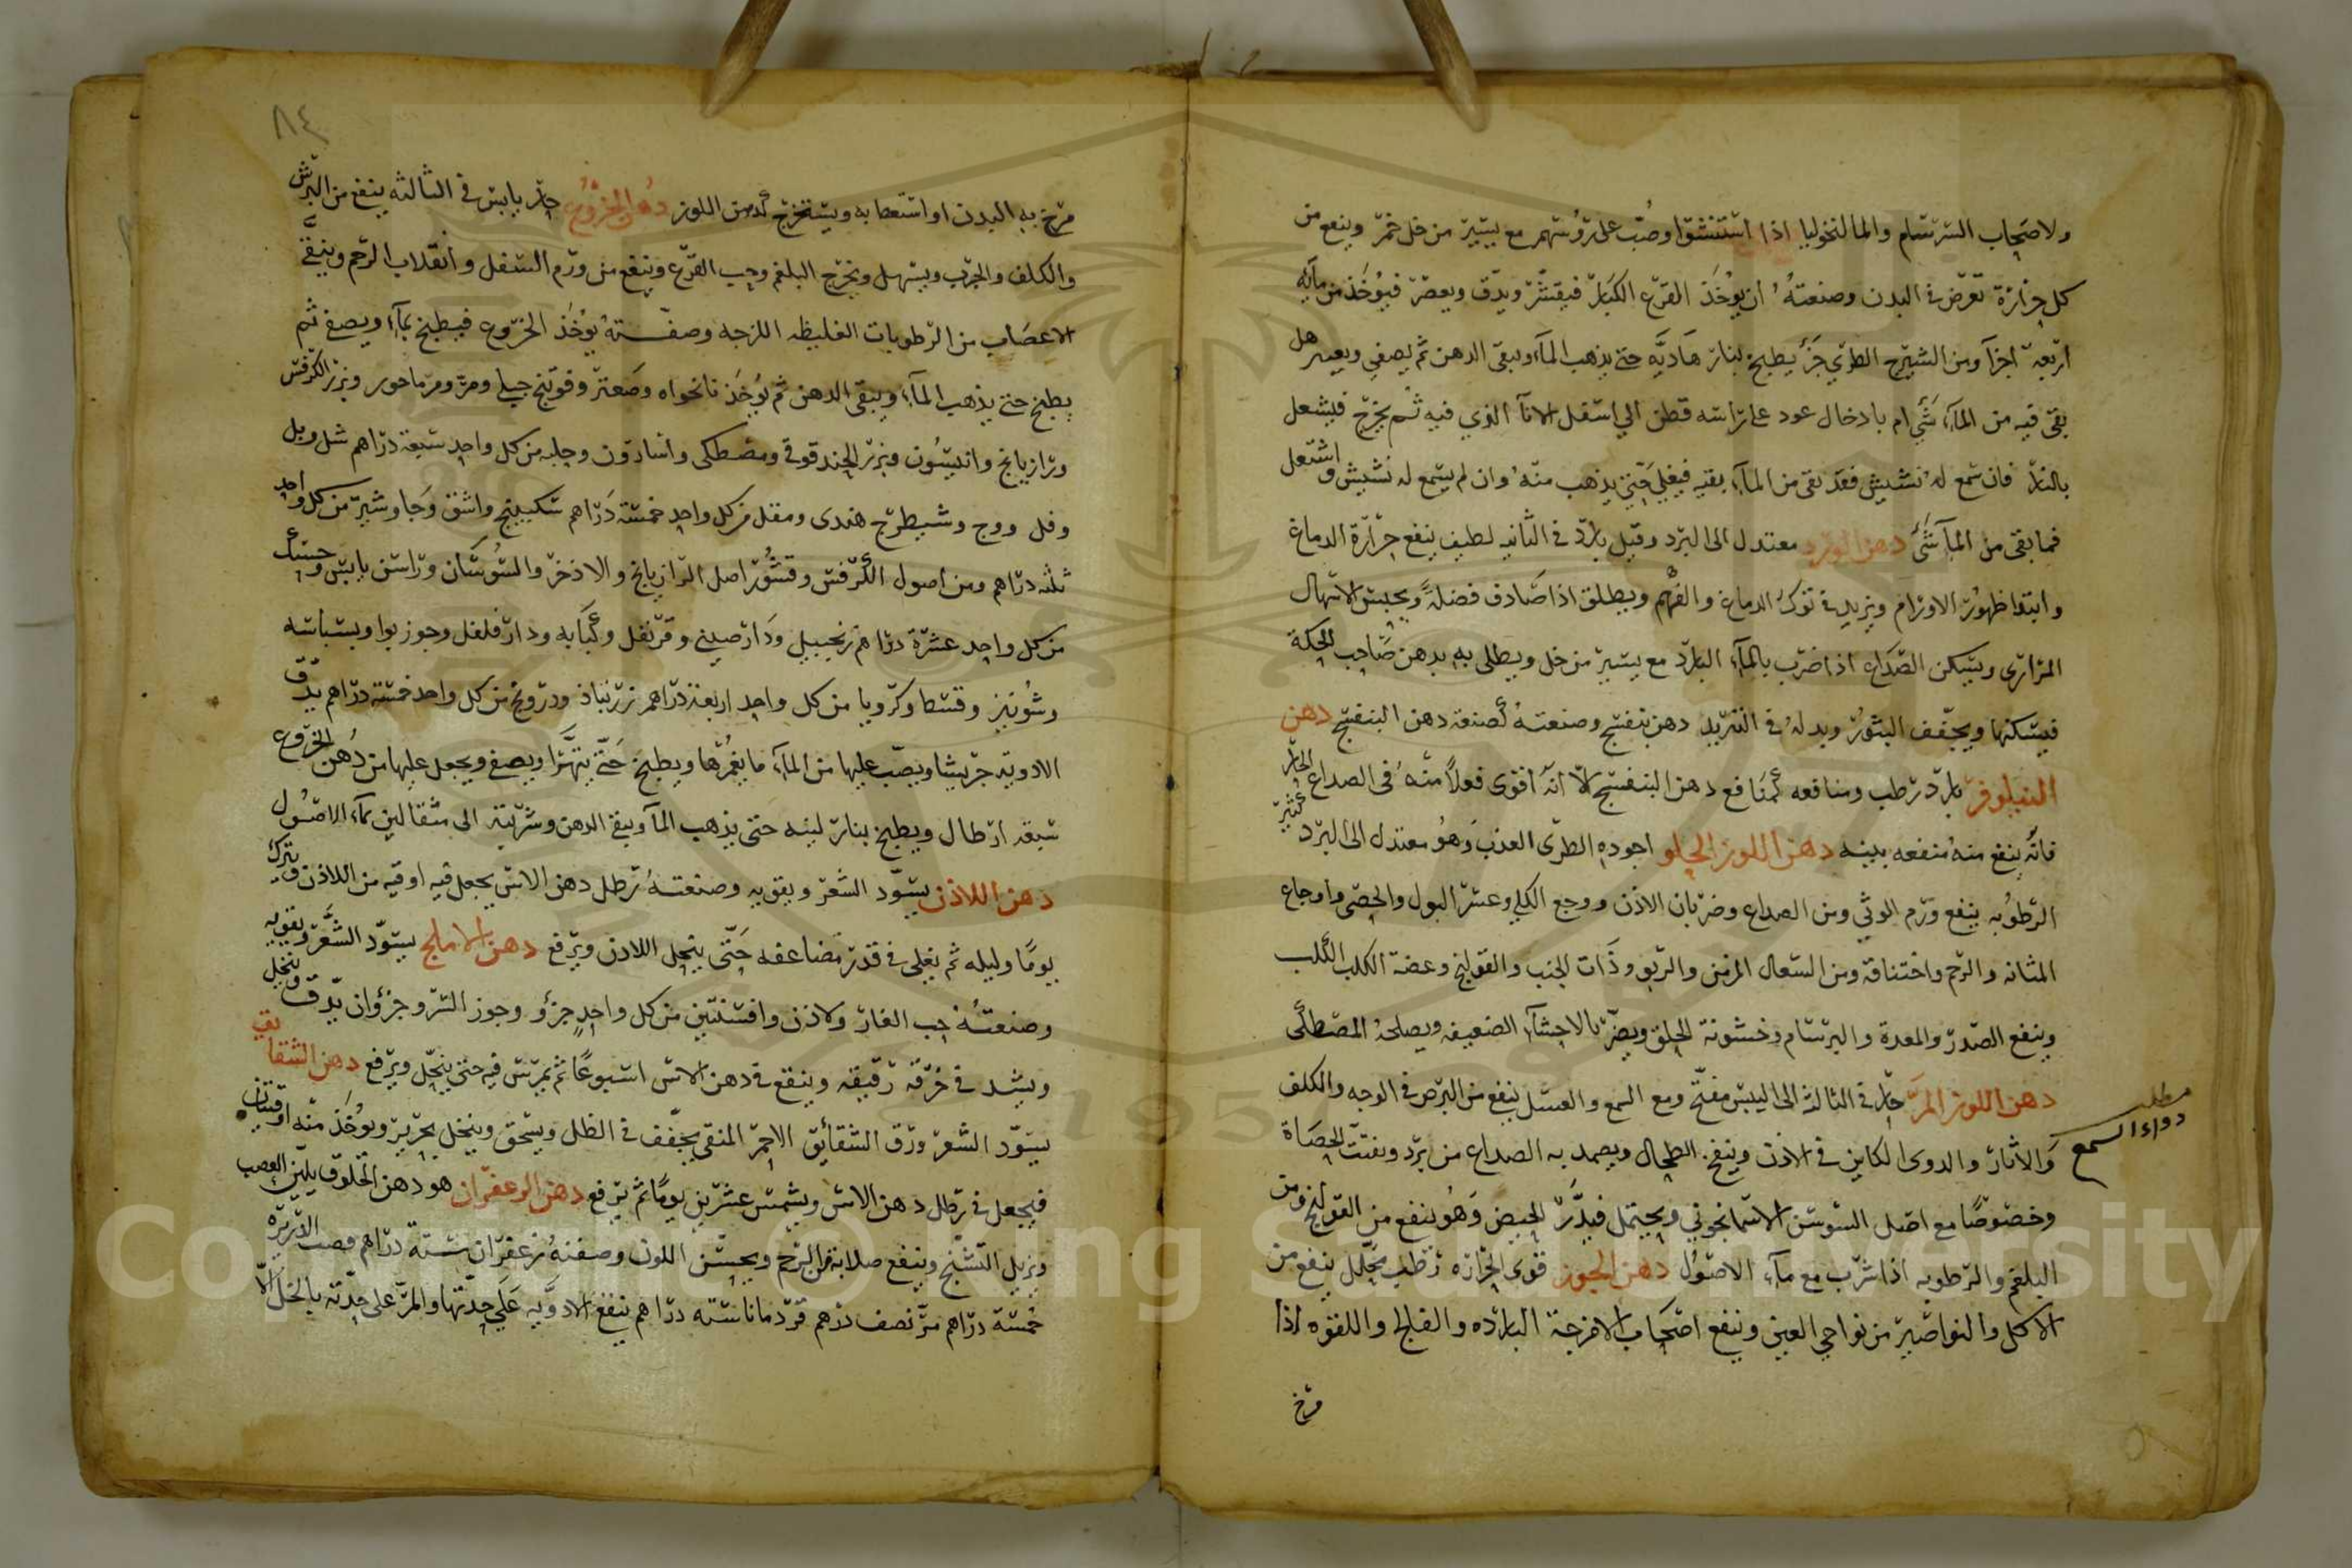 ولاصحاب السرسام والمالنخوليا اذا استنشقوا وصب على رؤسهم مع يسير من خل خمر وينفع من
كل حرارة تعرض فى البدن وصنعته ان يؤخذ القرع الكبار فيقشر ويدق ويعصر فيؤخذ من مآئه
اربعة اجزآ ومن الشيرج الطري جزء يطبخ بنار هاديه حتى يذهب المآء ويبقى الدهن ثم يصفى ويعبر هل
بقى فيه من المآء شي ام بادخال عود على راسه قطن الي اسفل الانآ الذي فيه ثم يخرج فيشعل
بالنار فان سمع له نشيش فقد بقى من المآء بقيه فيغلي حتى يذهب منه وان لم يسمع له نشيش واشتعل
فما بقى من المآ شئ دهن الورد معتدل الى البرد وقيل بارد فى الثانيه لطيف ينفع حرارة الدماغ
وابتدا ظهور الاورام ويزيد فى قوة الدماغ والفهم ويطلق اذا صادف فضلة ويحبس الاسهال
المرارى ويسكن الصداع اذا ضرب بالمآء البارد مع يسير من خل ويطلى به بدهن صاحب الحكة
فيسكنها ويجفف البثور وبدله فى التبريد دهن بنفسج وصنعته كصنعة دهن البنفسج دهن
النيلوفر بارد رطب ومنافعه كمنافع دهن البنفسج الا انه اقوى فعلا منه فى الصداع الحار
فانه ينفع منه منفعه بينه دهن اللوز الحلو اجوده الطرى العذب وهو معتدل الى البرد كثير
الرطوبه ينفع ورم الوثي ومن الصداع وضربان الاذن ووجع الكلي وعسر البول والحصى واوجاع
المثانه والرحم واختناقه ومن السعال المزمن والربو وذات الجنب والقولنج وعضة الكلب الكلب
وينفع الصدر والمعدة والبرسام وخشونة الحلق ويضر بالاحشآء الضعيفه ويصلحه المصطكى
دهن اللوز المر حار فى الثالثه الى اليبس مفتح ومع الشمع والعسل ينفع من البرص فى الوجه والكلف
مطلب دواء السمع
والاثار والدوى الكاين فى الاذن وينفع الطحال ويضمد به الصداع من برد ويفتت الحصاة
وخصوصا مع اصل السوسن الاسمانجوني ويحتمل فيدر الحيض وهو ينفع من القولنج ومن
البلغم والرطوبه اذا شرب مع مآء الاصول دهن الجوز قوى الحرارة رطب محلل ينفع من
الاكله والنواصير من نواحي العين وينفع اصحاب الامزجة البارده والفالج واللقوه اذا
مرخ
٨٤
مرخ به البدن او استعط به ويستخرج كدهن اللوز دهن الخروع حار يابس فى الثالثه ينفع من البرش
والكلف والجرب ويسهل ويخرج البلغم وحب القرع وينفع من ورم السفل وانقلاب الرحم وينقى
الاعصاب من الرطوبات الغليظه اللزجه وصفته يؤخذ الخروع فيطبخ بمآء ويصفى ثم
يطبخ حتى يذهب المآء ويبقى الدهن ثم يؤخذ نانخواه وصعتر وفوتنج جبلي ومر ومرماحور وبزر الكرفس
ورازيانج وانيسون وبزر الحندقوقى ومصطكى واسارون وحلبه من كل واحد سبعة دراهم شل وبل
وفل ووج وشيطرج هندى ومقل من كل واحد خمسة دراهم سكبينج واشق وجاوشير من كل واحد
ثلثه دراهم ومن اصول الكرفس وقشور اصل الرازيانج والاذخر والسوسان وراسن يابس وحسك
من كل واحد عشرة دراهم زنجبيل ودارصيني وقرنفل وكبابه ودارفلفل وجوزبوا وبسباسه
وشونيز وقسط وكرويا من كل واحد اربعة دراهم زرنباذ ودرونج من كل واحد خمسة دراهم يدق
الادويه جريشا ويصب عليها من المآء ما يغمرها ويطبخ حتى يتهرا ويصفى ويجعل عليها من دهن الخروع
سبعه ارطال ويطبخ بنار لينه حتى يذهب المآ ويبقى الدهن وشربته الى مثقالين بمآء الاصول
دهن اللاذن يسود الشعر ويقويه وصنعته رطل دهن الاس يجعل فيه اوقيه من اللاذن ويترك
يوما وليله ثم يغلى فى قدر مضاعفه حتى ينحل اللادن ويرفع دهن الاملج يسود الشعر ويقويه
وصنعته حب الغار ولاذن وافسنتين من كل واحد جزؤ وجوز السرو جزؤان يدق وينخل
ويشد فى خرقه رقيقه وينقع فى دهن الاس اسبوعا ثم يمرس فيه حتى ينحل ويرفع دهن الشقائق
يسود الشعر ورق الشقائق الاحمر المنقى يجفف فى الظل ويسحق وينخل بحرير ويؤخذ منه اوقيتان
فيجعل فى رطل دهن الاس ويشمس عشرين يوما ثم يرفع دهن الزعفران هو دهن الخلوق يلين العصب
ويزيل التشنج وينفع صلابة الرحم ويحسن اللون وصفته زعفران ستة دراهم قصب الذريره
خمسة دراهم مر نصف درهم قردمانا ستة دراهم ينقع الادويه على حدتها والمر على حدته بالخل الا